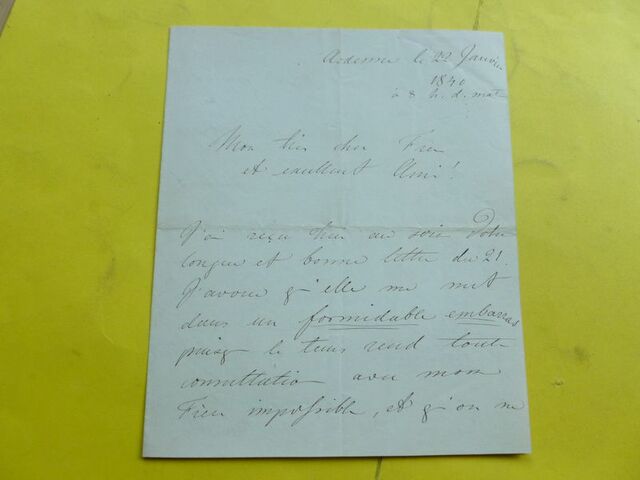 Ardenne le 22 Janvier
1840
à 8 h. d. mat
Mon très cher Frère
et excellent Ami!
J'ai reçu hier au soir Votre
longue et bonne lettre du 21.
J'avoue q'elle me met
dans un formidable embarras
puisq le tems rend tout
consultation avec mon
Frère impossible, et q'on ne